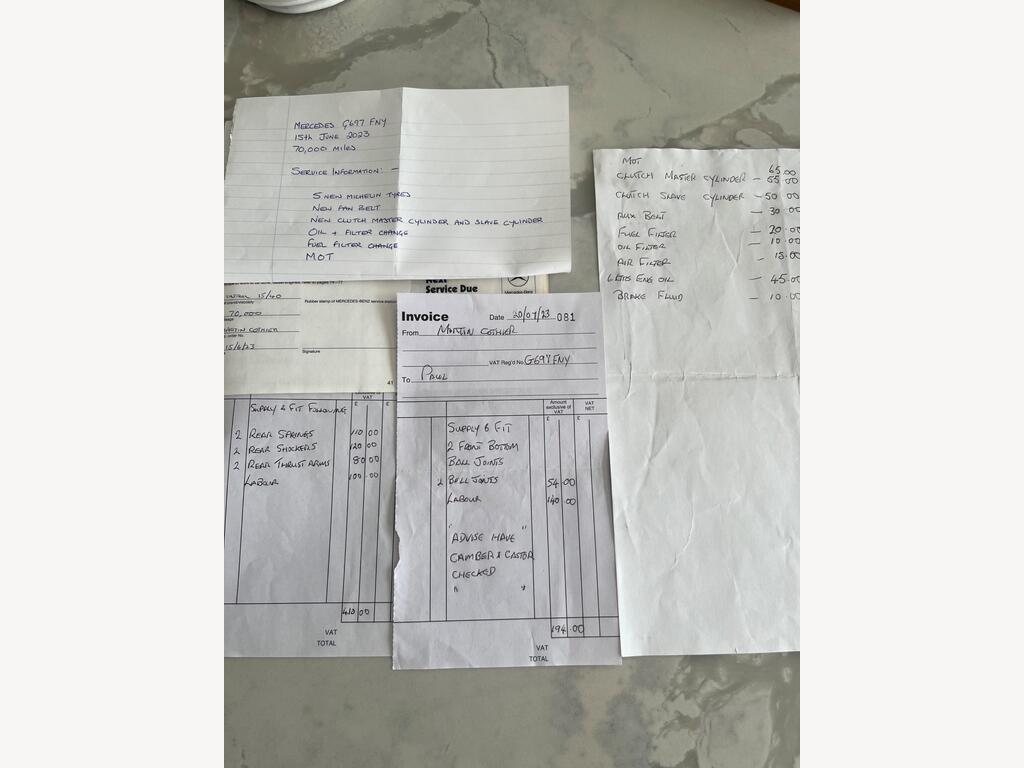 MERCEDES G697 FNY
15TH JUNE 2023
70,000 MILES
SERVICE INFORMATION: -
5 NEW MICHELIN TYRES
NEW FAN BELT
NEW CLUTCH MASTER CYLINDER AND SLAVE CYLINDER
OIL + FILTER CHANGE
FUEL FILTER CHANGE
MOT
MOT 65.00
CLUTCH MASTER CYLINDER - 55.00
CLUTCH SLAVE CYLINDER - 50.00
AUX BELT - 30.00
FUEL FILTER - 20.00
OIL FILTER - 10.00
AIR FILTER - 15.00
ENG OIL - 45.00
BRAKE FLUID - 10.00
Next
Service Due
Mercedes-Benz
15/40
Rubber stamp of MERCEDES-BENZ service
70,000
MARTIN COTHIER
order No.
15/6/23
Signature
41
VAT
£ £
SUPPLY & FIT FOLLOWING
2 REAR SPRINGS 110 00
2 REAR SHOCKERS 120 00
2 REAR THRUST ARMS 80 00
LABOUR 100.00
410 00
VAT
TOTAL
Invoice
Date 20/07/23 081
From MARTIN COTHIER
VAT Reg'd No. G697 FNY
To PAUL
Amount exclusive of VAT
VAT NET
£ £
SUPPLY & FIT
2 FRONT BOTTOM
BALL JOINTS
2 BALL JOINTS 54.00
LABOUR 140.00
" "
ADVISE HAVE
CAMBER & CASTOR
CHECKED
" "
194.00
VAT
TOTAL